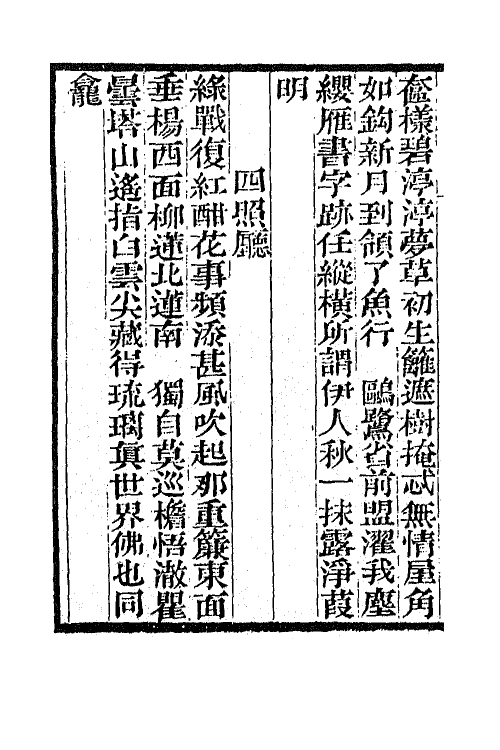 奩樣碧渟渟夢草初生籬遮樹掩忒無情屋角
如鈎新月到領了魚行　鷗鷺省前盟濯我塵
纓雁書字跡任縱橫所謂伊人秋一抹露淨葭
明
四照廳
綠戰復紅酣花事頻添甚風吹起那重簾東面
垂楊西面柳蓮北蓮南　獨自莫巡檐悟澈瞿
曇塔山遙指白雲尖藏得琉璃眞世界佛也同
龕